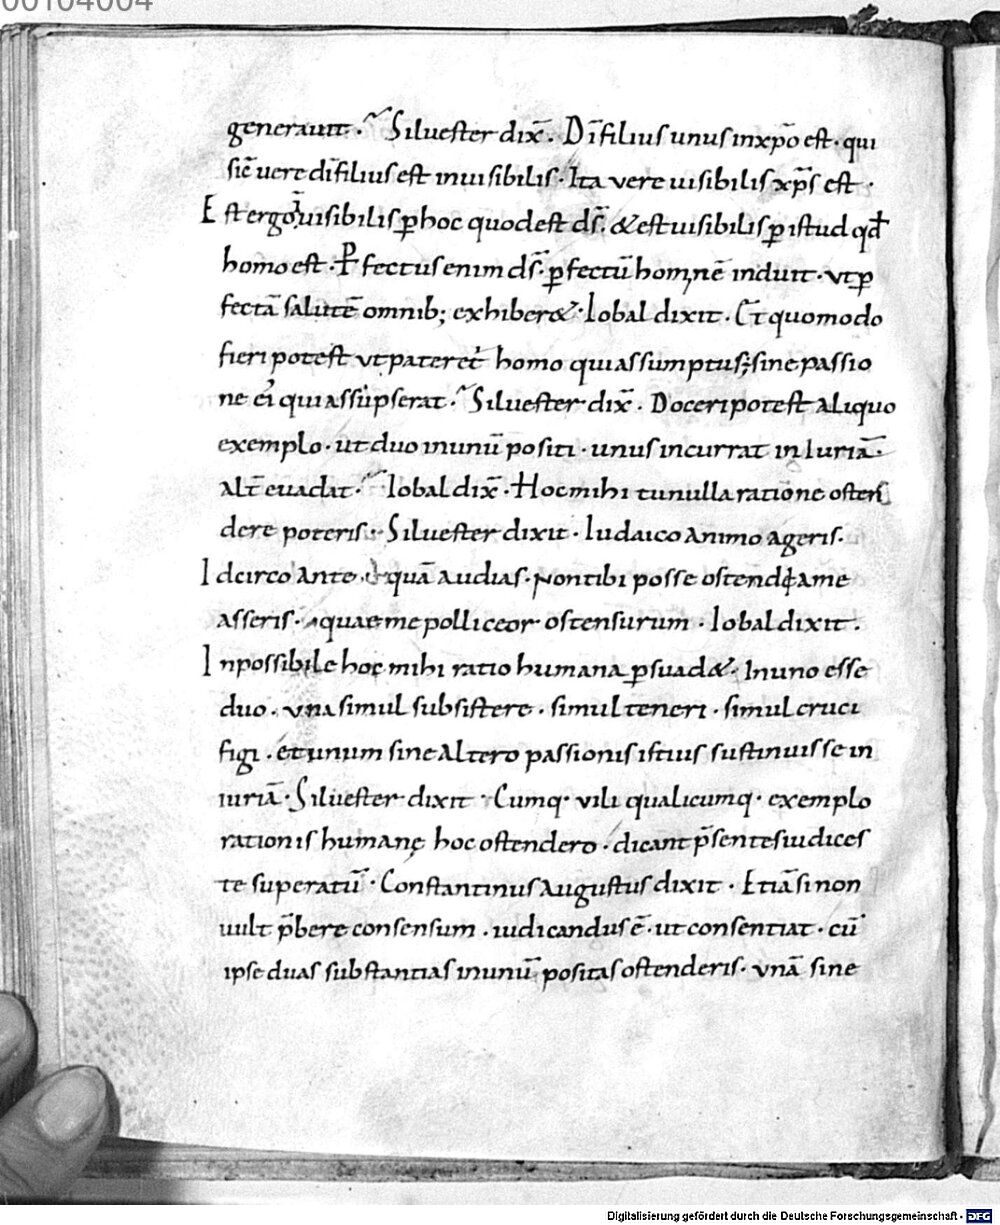 00104004
generauit. Siluester dix̄. Dī filius unus inxp̄o est. qui
sic̄ uere dī filius est inuisibilis. Ita uere uisibilis xp̄s est.
Est ergo uisibilis ꝑ hoc quod est ds̄. & est uisibilis ꝑ istud qđ
homo est. Ꝑfectus enim ds̄. ꝑfectū hominē induit. ut ꝑ
fectā salutē omnib; exhiber&. Iobal dixit. Et quomodo
fieri potest ut pateret̄ homo qui assumptus; sine passio
ne ei qui assūpserat. Siluester dix̄. Doceri potest aliquo
exemplo. ut duo inunū positi. unus incurrat iniuriā.
alt̄ euadat. Iobal dix̄. Hoc mihi tu nulla ratione osten
dere poteris. Siluester dixit. Iudaico animo ageris.
Idcirco ante quā audias. Non tibi posse ostendi a me
asseris. quae me polliceor ostensurum. Iobal dixit.
Inpossibile hoc mihi ratio humana ꝑsuad&. In uno esse
duo. una simul subsistere. simul teneri. simul cruci
figi. et unum sine altero passionis istius sustinuisse in
iuriā. Siluester dixit. Cumq. uili qualicumq. exemplo
rationis humanę hoc ostendero. dicant p̄sentes iudices
te superatū. Constantinus augustus dixit. Etiā si non
uult p̄bere consensum. iudicandus ē. ut consentiat. cū
ipse duas substantias inunū positas ostenderis. unā sine
Digitalisierung gefördert durch die Deutsche Forschungsgemeinschaft - DFG